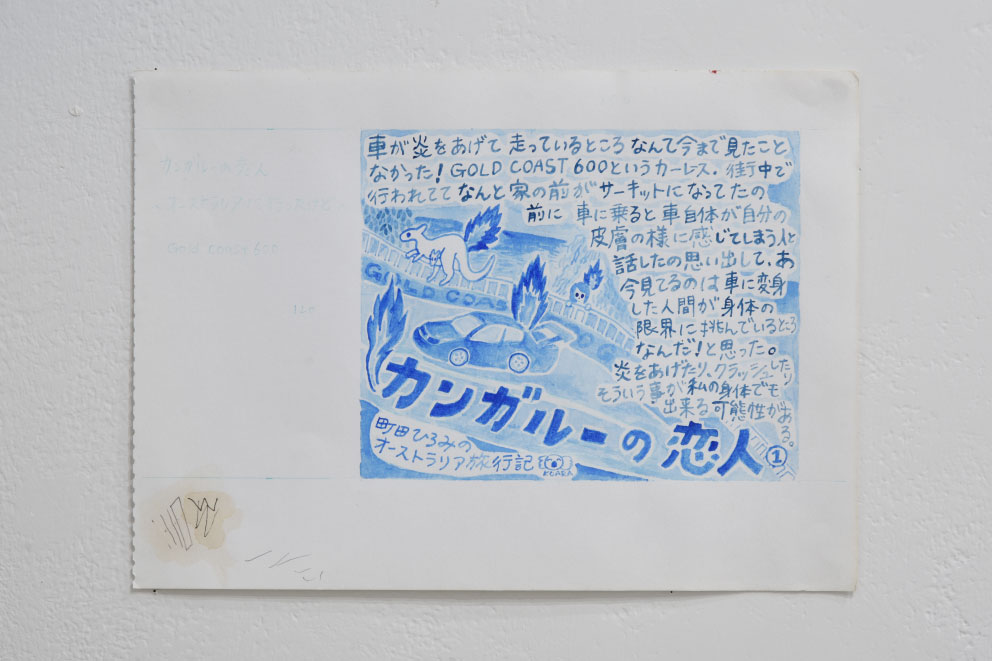 車が炎をあげて走っているところなんて今まで見たこと
なかった！GOLD COAST 600というカーレース。街中で
行われててなんと家の前がサーキットになってたの
前に車に乗ると車自体が自分の
皮膚の様に感じてしまう人と
話したの思い出して、あ
今見てるのは車に変身
した人間が身体の
限界に挑んでいるところ
なんだ！と思った。
炎をあげたり、クラッシュしたり
そういう事が私の身体でも
出来る可能性がある。
GOLD COAS
カンガルーの恋人①
町田ひろみの
オーストラリア旅行記
KOALA
カンガルーの恋人
Gold Coast 600